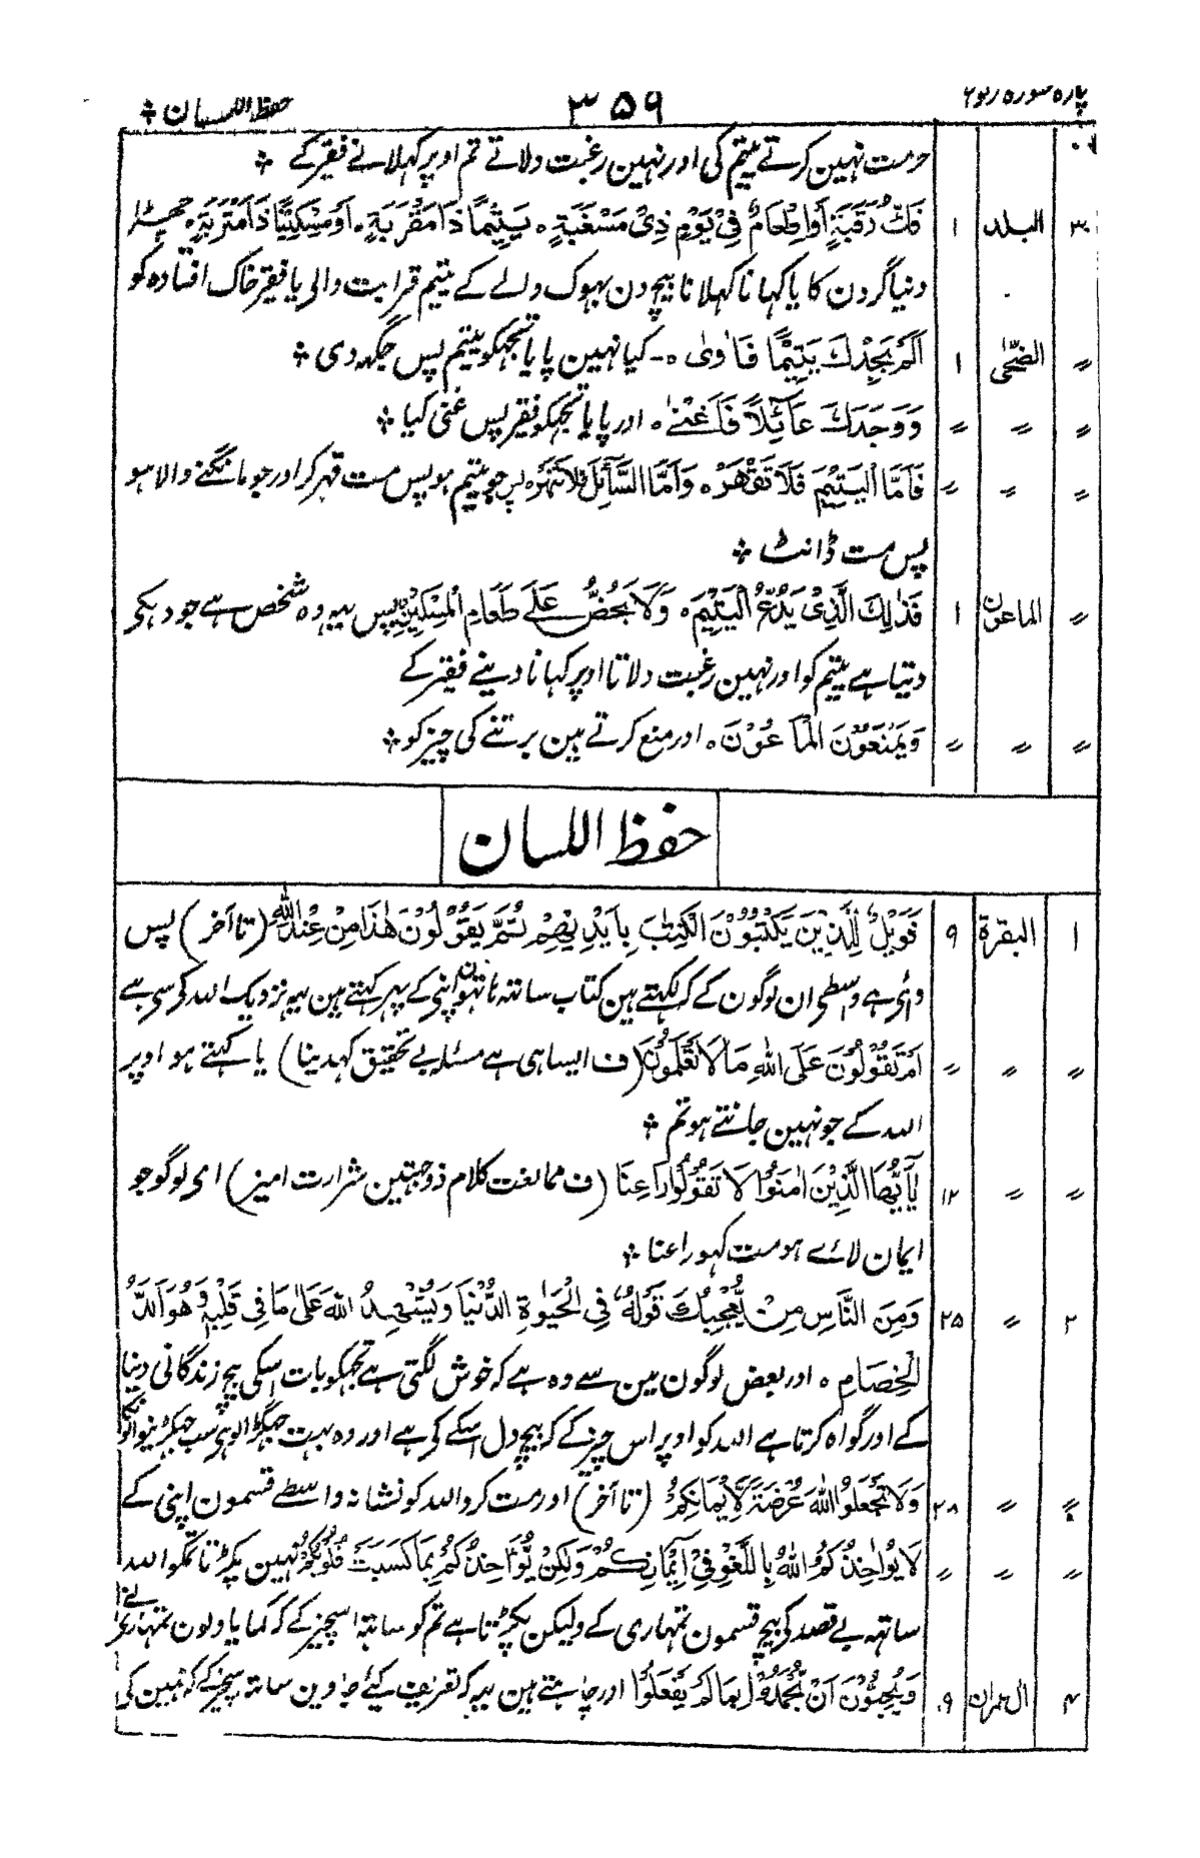 پاره سوره رکوع ۳۵۹ حفظ اللسان
حرمت نہین کرتے یتیم کی اور نہین رغبت دلاتے تم اوپر کہلانے فقیر کے
۳۰ البلد ۱ فَكُّ رَقَبَةٍ أَوْ إِطْعَامٌ فِيْ يَوْمٍ ذِيْ مَسْغَبَةٍ ۰ يَتِيْمًا ذَا مَقْرَبَةٍ ۰ أَوْ مِسْكِيْنًا ذَا مَتْرَبَةٍ ۰ چھڑا
دنیا گردن کا یا کہانا کہلانا بیچ دن بہوک والے کے یتیم قرابت والی یا فقیر خاک افتادہ کو
〃 الضحٰى ۱ اَلَمْ يَجِدْكَ يَتِيْمًا فَاٰوٰى ۰ کیا نہین پایا تجہکو یتیم پس جگہ دی
〃 〃 〃 وَوَجَدَكَ عَآئِلًا فَاَغْنٰى ۰ اور پایا تجہکو فقیر پس غنی کیا
〃 〃 〃 فَاَمَّا الْيَتِيْمَ فَلَا تَقْهَرْ ۰ وَاَمَّا السَّآئِلَ فَلَا تَنْهَرْ ۰ پس جو یتیم ہو پس مت قہر کر اور جو مانگنے والا ہو
پس مت ڈانٹ
〃 الماعون ۱ فَذٰلِكَ الَّذِيْ يَدُعُّ الْيَتِيْمَ ۰ وَلَا يَحُضُّ عَلٰى طَعَامِ الْمِسْكِيْنِ پس یہہ وہ شخص ہے جو دہکے
دیتا ہے یتیم کو اور نہین رغبت دلاتا اوپر کہانا دینے فقیر کے
〃 〃 〃 وَيَمْنَعُوْنَ الْمَاعُوْنَ ۰ اور منع کرتے ہین برتنے کی چیز کو
حفظ اللسان
۱ البقرة ۹ فَوَيْلٌ لِّلَّذِيْنَ يَكْتُبُوْنَ الْكِتٰبَ بِاَيْدِيْهِمْ ثُمَّ يَقُوْلُوْنَ هٰذَا مِنْ عِنْدِ اللّٰهِ (تا آخر) پس
وائی ہے واسطی ان لوگون کے کہ لکہتے ہین کتاب ساتہ ہاتہون اپنی کے پہر کہتے ہین یہہ نزدیک اللہ کی سے ہے
〃 〃 〃 اَمْ تَقُوْلُوْنَ عَلَى اللّٰهِ مَا لَا تَعْلَمُوْنَ (ف ایسا ہی ہے مسئلہ بے تحقیق کہدینا) یا کہتے ہو اوپر
اللہ کے جو نہین جانتے ہو تم
〃 〃 ۱۲ يٰٓاَيُّهَا الَّذِيْنَ اٰمَنُوْا لَا تَقُوْلُوْا رَاعِنَا (ف ممانعت کلام ذوجہتین شرارت امیز) ای لوگو جو
ایمان لائے ہو مت کہو راعنا
۲ 〃 ۲۵ وَمِنَ النَّاسِ مَنْ يُّعْجِبُكَ قَوْلُهٗ فِي الْحَيٰوةِ الدُّنْيَا وَيُشْهِدُ اللّٰهَ عَلٰى مَا فِيْ قَلْبِهٖ وَهُوَ اَلَدُّ
الْخِصَامِ ۰ اور بعض لوگون مین سے وہ ہے کہ خوش لگتی ہے تجہکو بات اسکی بیچ زندگانی دنیا
کے اور گواہ کرتا ہے اللہ کو اوپر اس چیز کے کہ بیچ دل اسکے کی ہے اور وہ بہت جہگڑالو ہی سب جہگڑنیوالونکا
〃 〃 ۲۸ وَلَا تَجْعَلُوا اللّٰهَ عُرْضَةً لِّاَيْمَانِكُمْ (تا آخر) اور مت کرو اللہ کو نشانہ واسطے قسمون اپنی کے
〃 〃 〃 لَا يُؤَاخِذُكُمُ اللّٰهُ بِاللَّغْوِ فِيْٓ اَيْمَانِكُمْ وَلٰكِنْ يُّؤَاخِذُكُمْ بِمَا كَسَبَتْ قُلُوْبُكُمْ نہین پکڑتا تمکو اللہ
ساتہہ بے قصد کی بیچ قسمون تمہاری کے ولیکن پکڑتا ہے تم کو ساتہ اسچیز کے کہ کمایا دلون تمہاری نے
۴ ال عمران ۹ وَيُحِبُّوْنَ اَنْ يُّحْمَدُوْا بِمَا لَمْ يَفْعَلُوْا اور چاہتے ہین یہہ کہ تعریف کیئے جاوین ساتہ چیز کے کہ نہین کی